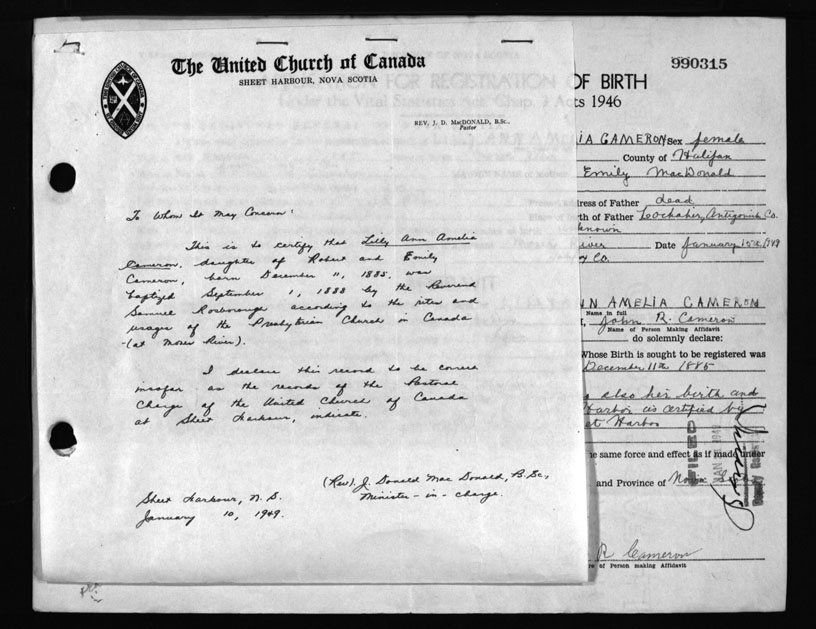 The United Church of Canada
SHEET HARBOUR, NOVA SCOTIA
REV. J. D. MacDONALD, B.Sc.,
Pastor
To Whom It May Concern:
This is to certify that Lilly Ann Amelia
Cameron, daughter of Robert and Emily
Cameron, born December 11, 1885, was
baptized September 1, 1888 by the Reverend
Samuel Rosborough according to the rites and
usages of the Presbyterian Church in Canada
(at Moser River).
I declare this record to be correct
insofar as the records of the Pastoral
Charge of the United Church of Canada
at Sheet Harbour, indicate.
(Rev). J. Donald MacDonald, B.Sc.,
Minister-in-charge.
Sheet Harbour, N.S.
January 10, 1949.
990315
OF BIRTH
ts 1946
IA CAMERON Sex female
County of Halifax
Emily MacDonald
dress of Father dead
th of Father Lochaber, Antigonish Co.
known
River Date January 15th 1949
x Co.
NN AMELIA CAMERON
Name in full
I, John R. Cameron
Name of Person Making Affidavit
do solemnly declare:
Whose Birth is sought to be registered was
December 11th 1885
also her birth and
Harbor as certified by
et Harbor
he same force and effect as if made under
and Province of Nova
FILED
JAN
R Cameron
re of Person making Affidavit